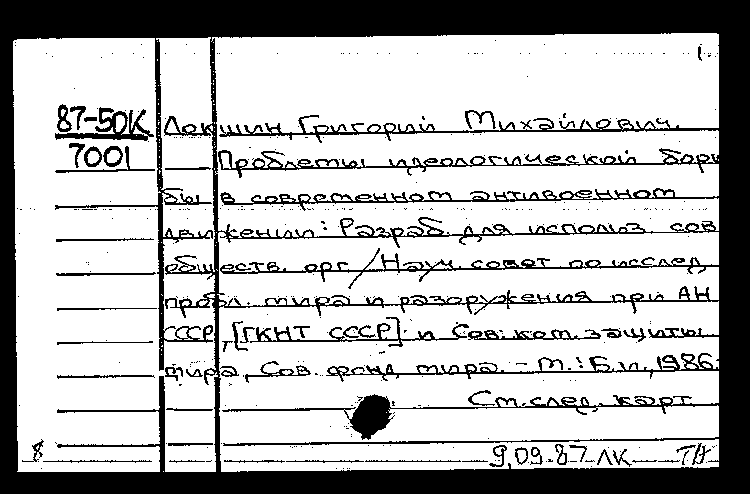 1.
87-50К Локшин, Григорий Михайлович.
7001 Проблемы идеологической борь
бы в современном антивоенном
движении: Разраб. для использ. сов
обществ. орг / Науч. совет по исслед.
пробл. мира и разоружения при АН
СССР, [ГКНТ СССР] и Сов. ком. защиты
мира, Сов. фонд мира. - М.: Б.и., 1986.
См. след. карт.
8 9.09.87 ЛК